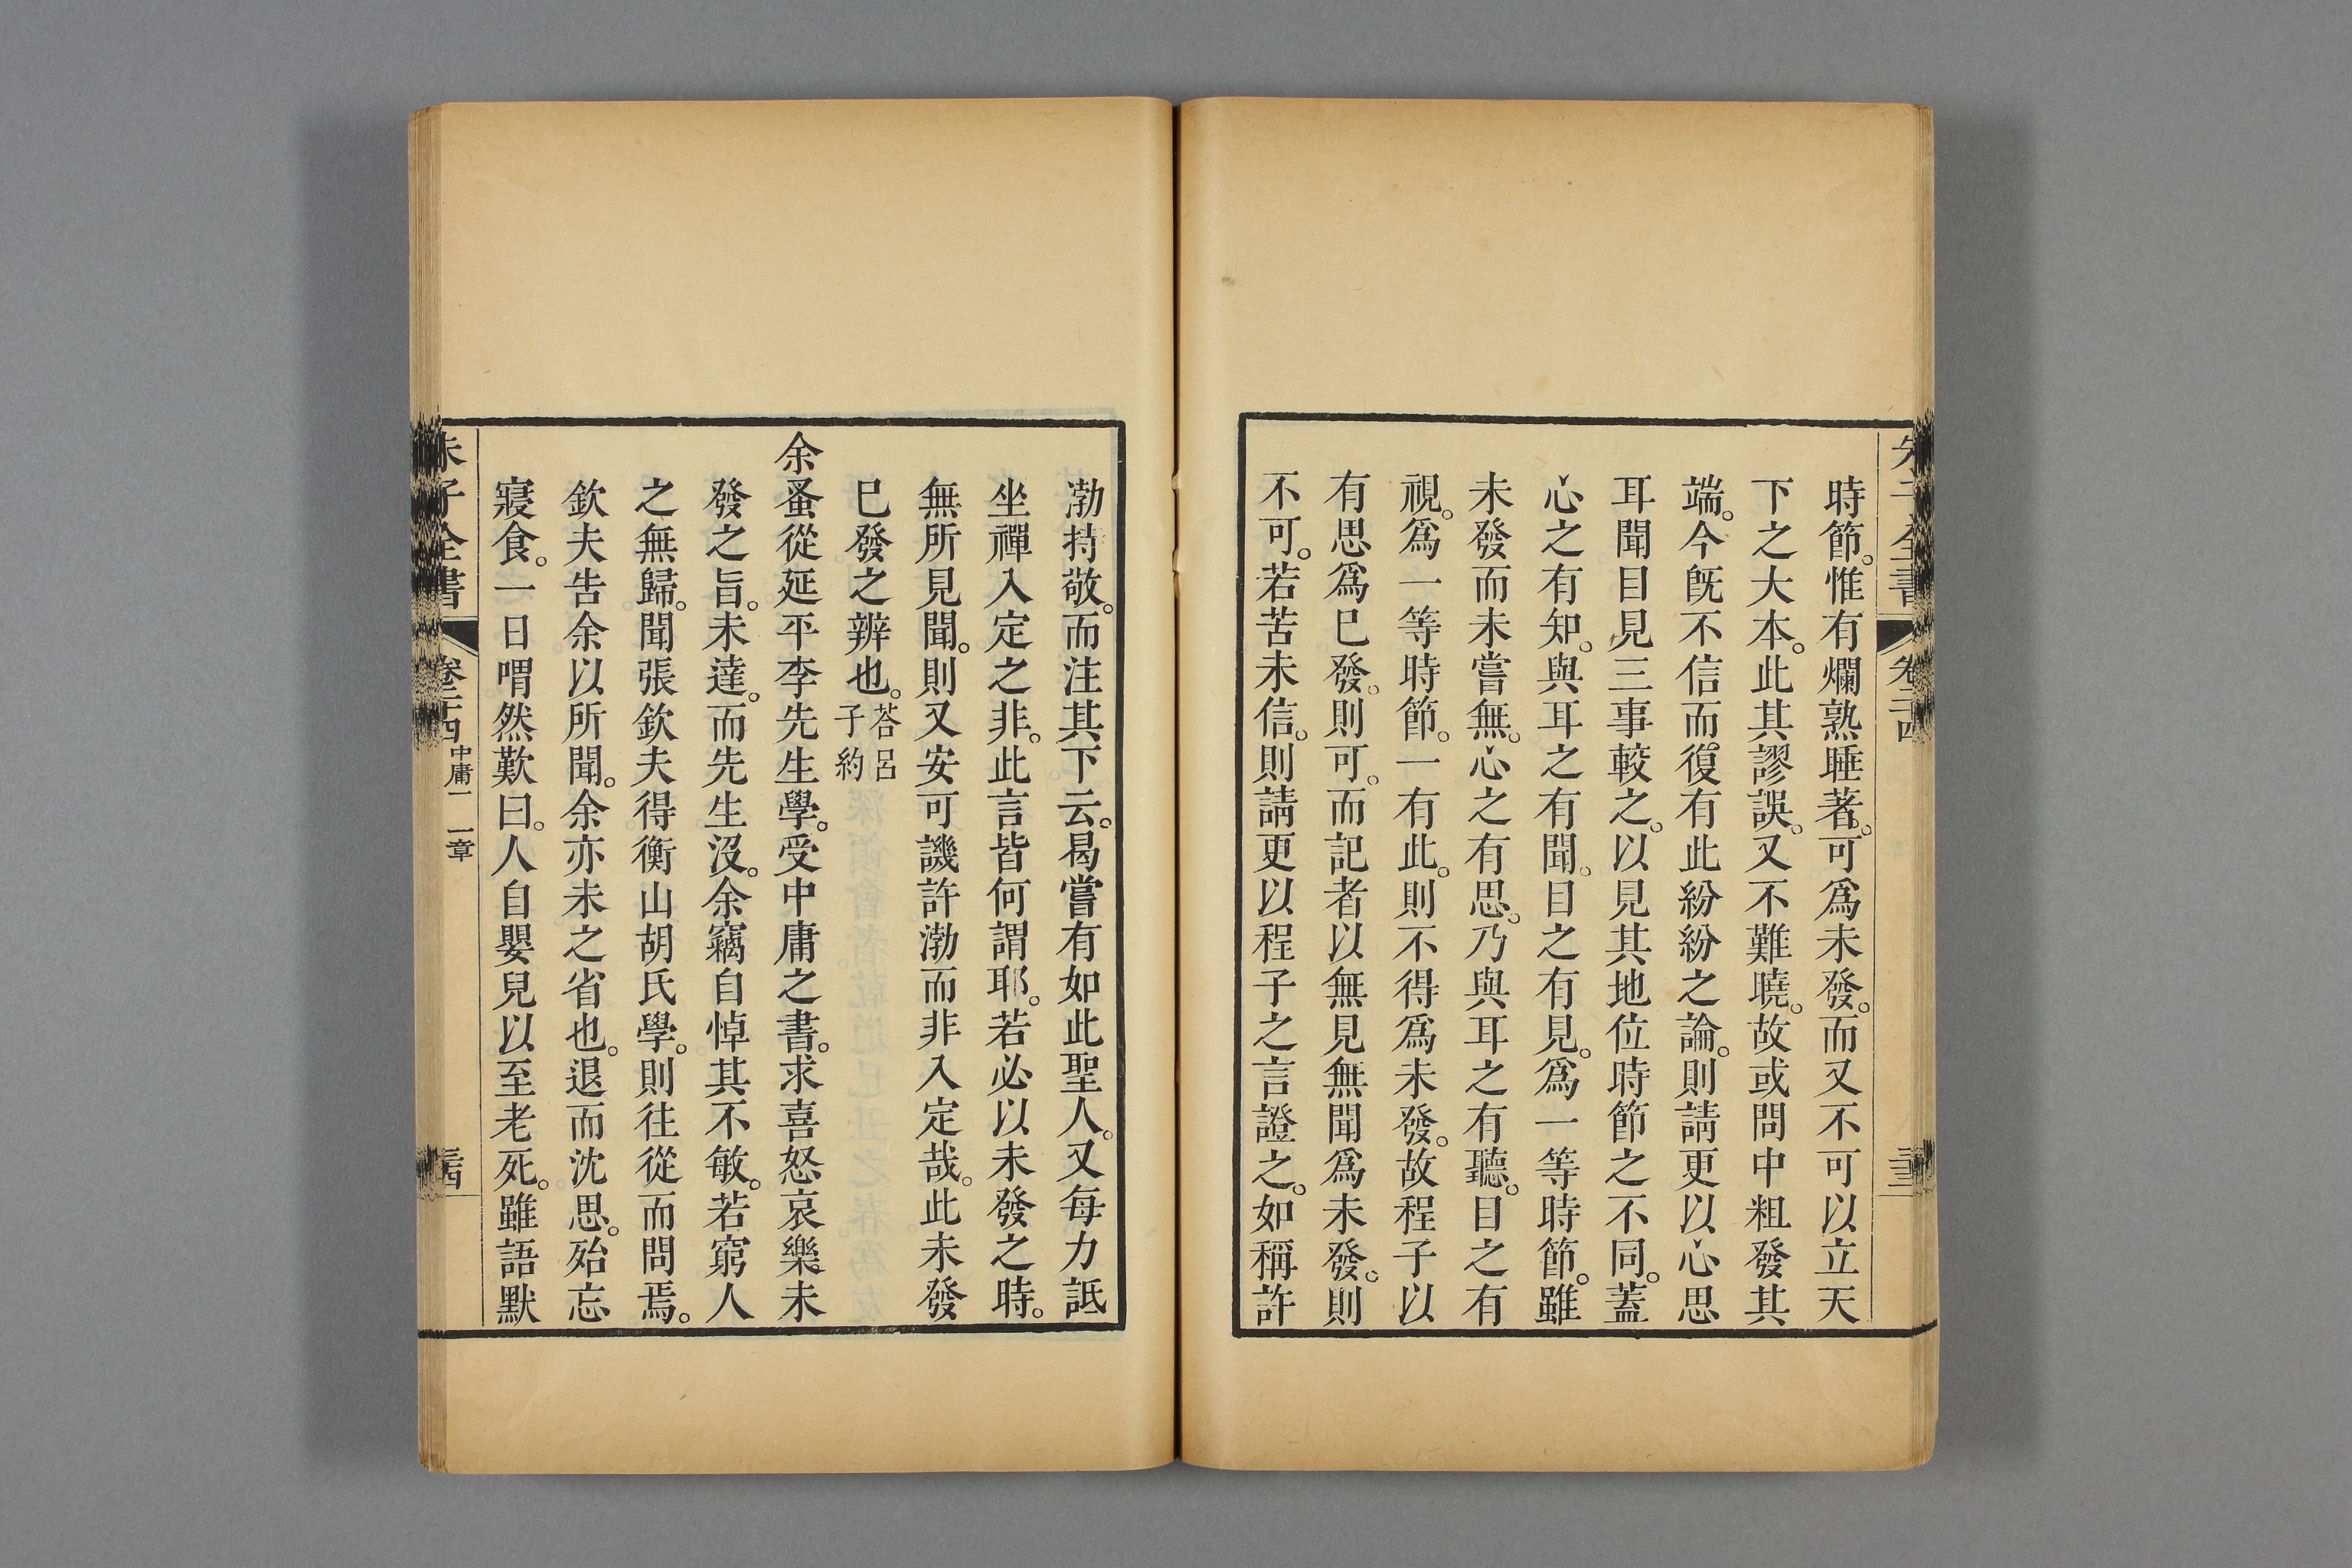 朱子全書 卷二十四 三十三
時節。惟有爛熟睡著。可爲未發。而又不可以立天
下之大本。此其謬誤。又不難曉。故或問中粗發其
端。今旣不信而復有此紛紛之論。則請更以心思
耳聞目見三事較之。以見其地位時節之不同。蓋
心之有知。與耳之有聞。目之有見。爲一等時節。雖
未發而未嘗無。心之有思。乃與耳之有聽。目之有
視。爲一等時節。一有此。則不得爲未發。故程子以
有思爲已發。則可。而記者以無見無聞爲未發。則
不可。若苦未信。則請更以程子之言證之。如稱許
渤持敬。而注其下云。曷嘗有如此聖人。又每力詆
坐禪入定之非。此言皆何謂耶。若必以未發之時。
無所見聞。則又安可譏許渤而非入定哉。此未發
已發之辨也。荅呂子約
余蚤從延平李先生學。受中庸之書。求喜怒哀樂未
發之旨。未達。而先生沒。余竊自悼其不敏。若窮人
之無歸。聞張欽夫得衡山胡氏學。則往從而問焉。
欽夫告余以所聞。余亦未之省也。退而沈思。殆忘
寢食。一日喟然歎曰。人自嬰兒以至老死。雖語默
朱子全書 卷二十四 中庸一 一章 三十四